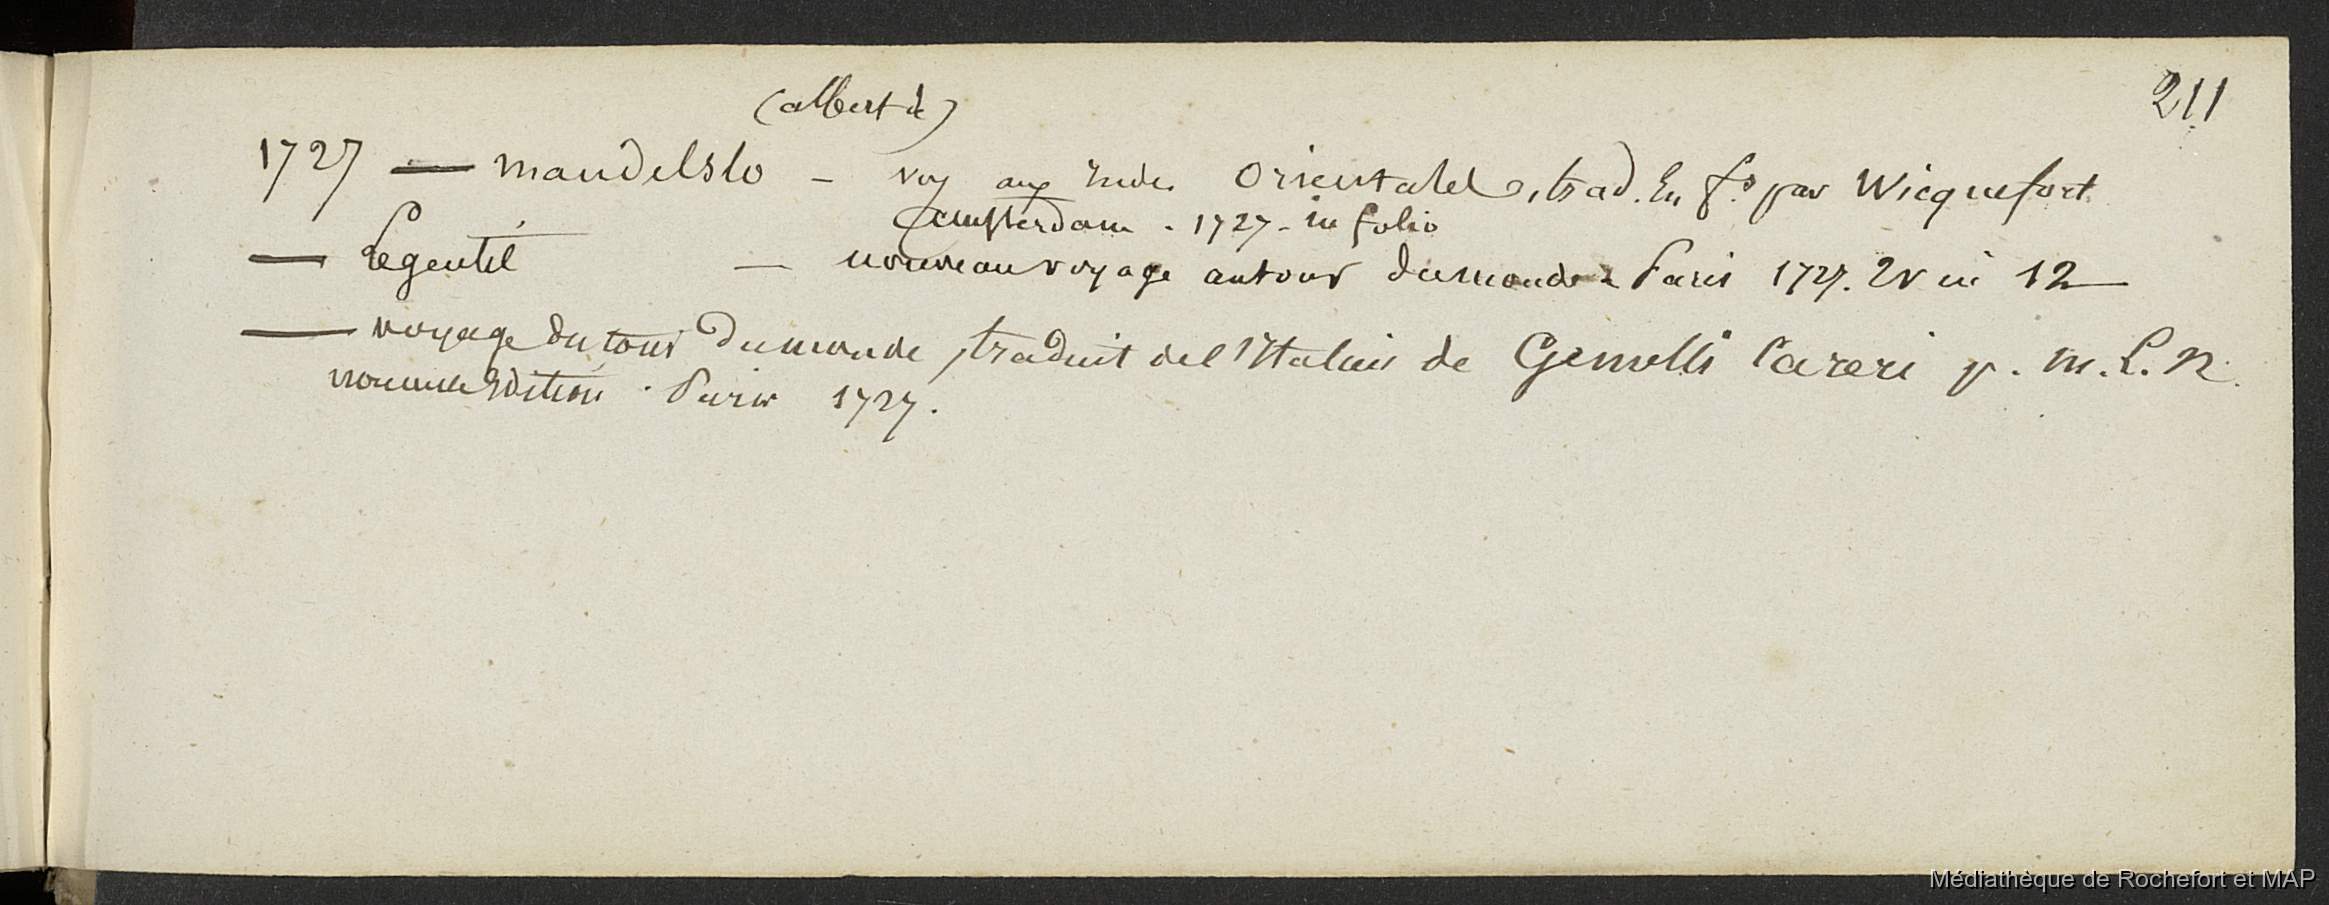 211
(albert de)
1727 — mandelslo – voy aux Indes Orientales, trad. en fs. par Wicquefort
amsterdam. 1727 - in folio
— Legentil — nouveau voyage autour du monde Paris 1727. 2v in 12 —
— voyage du tour du monde, traduit de l'Italien de Gemelli Careri p. M. L. N.
nouvelle Edition. Paris 1727.
Médiathèque de Rochefort et MAP